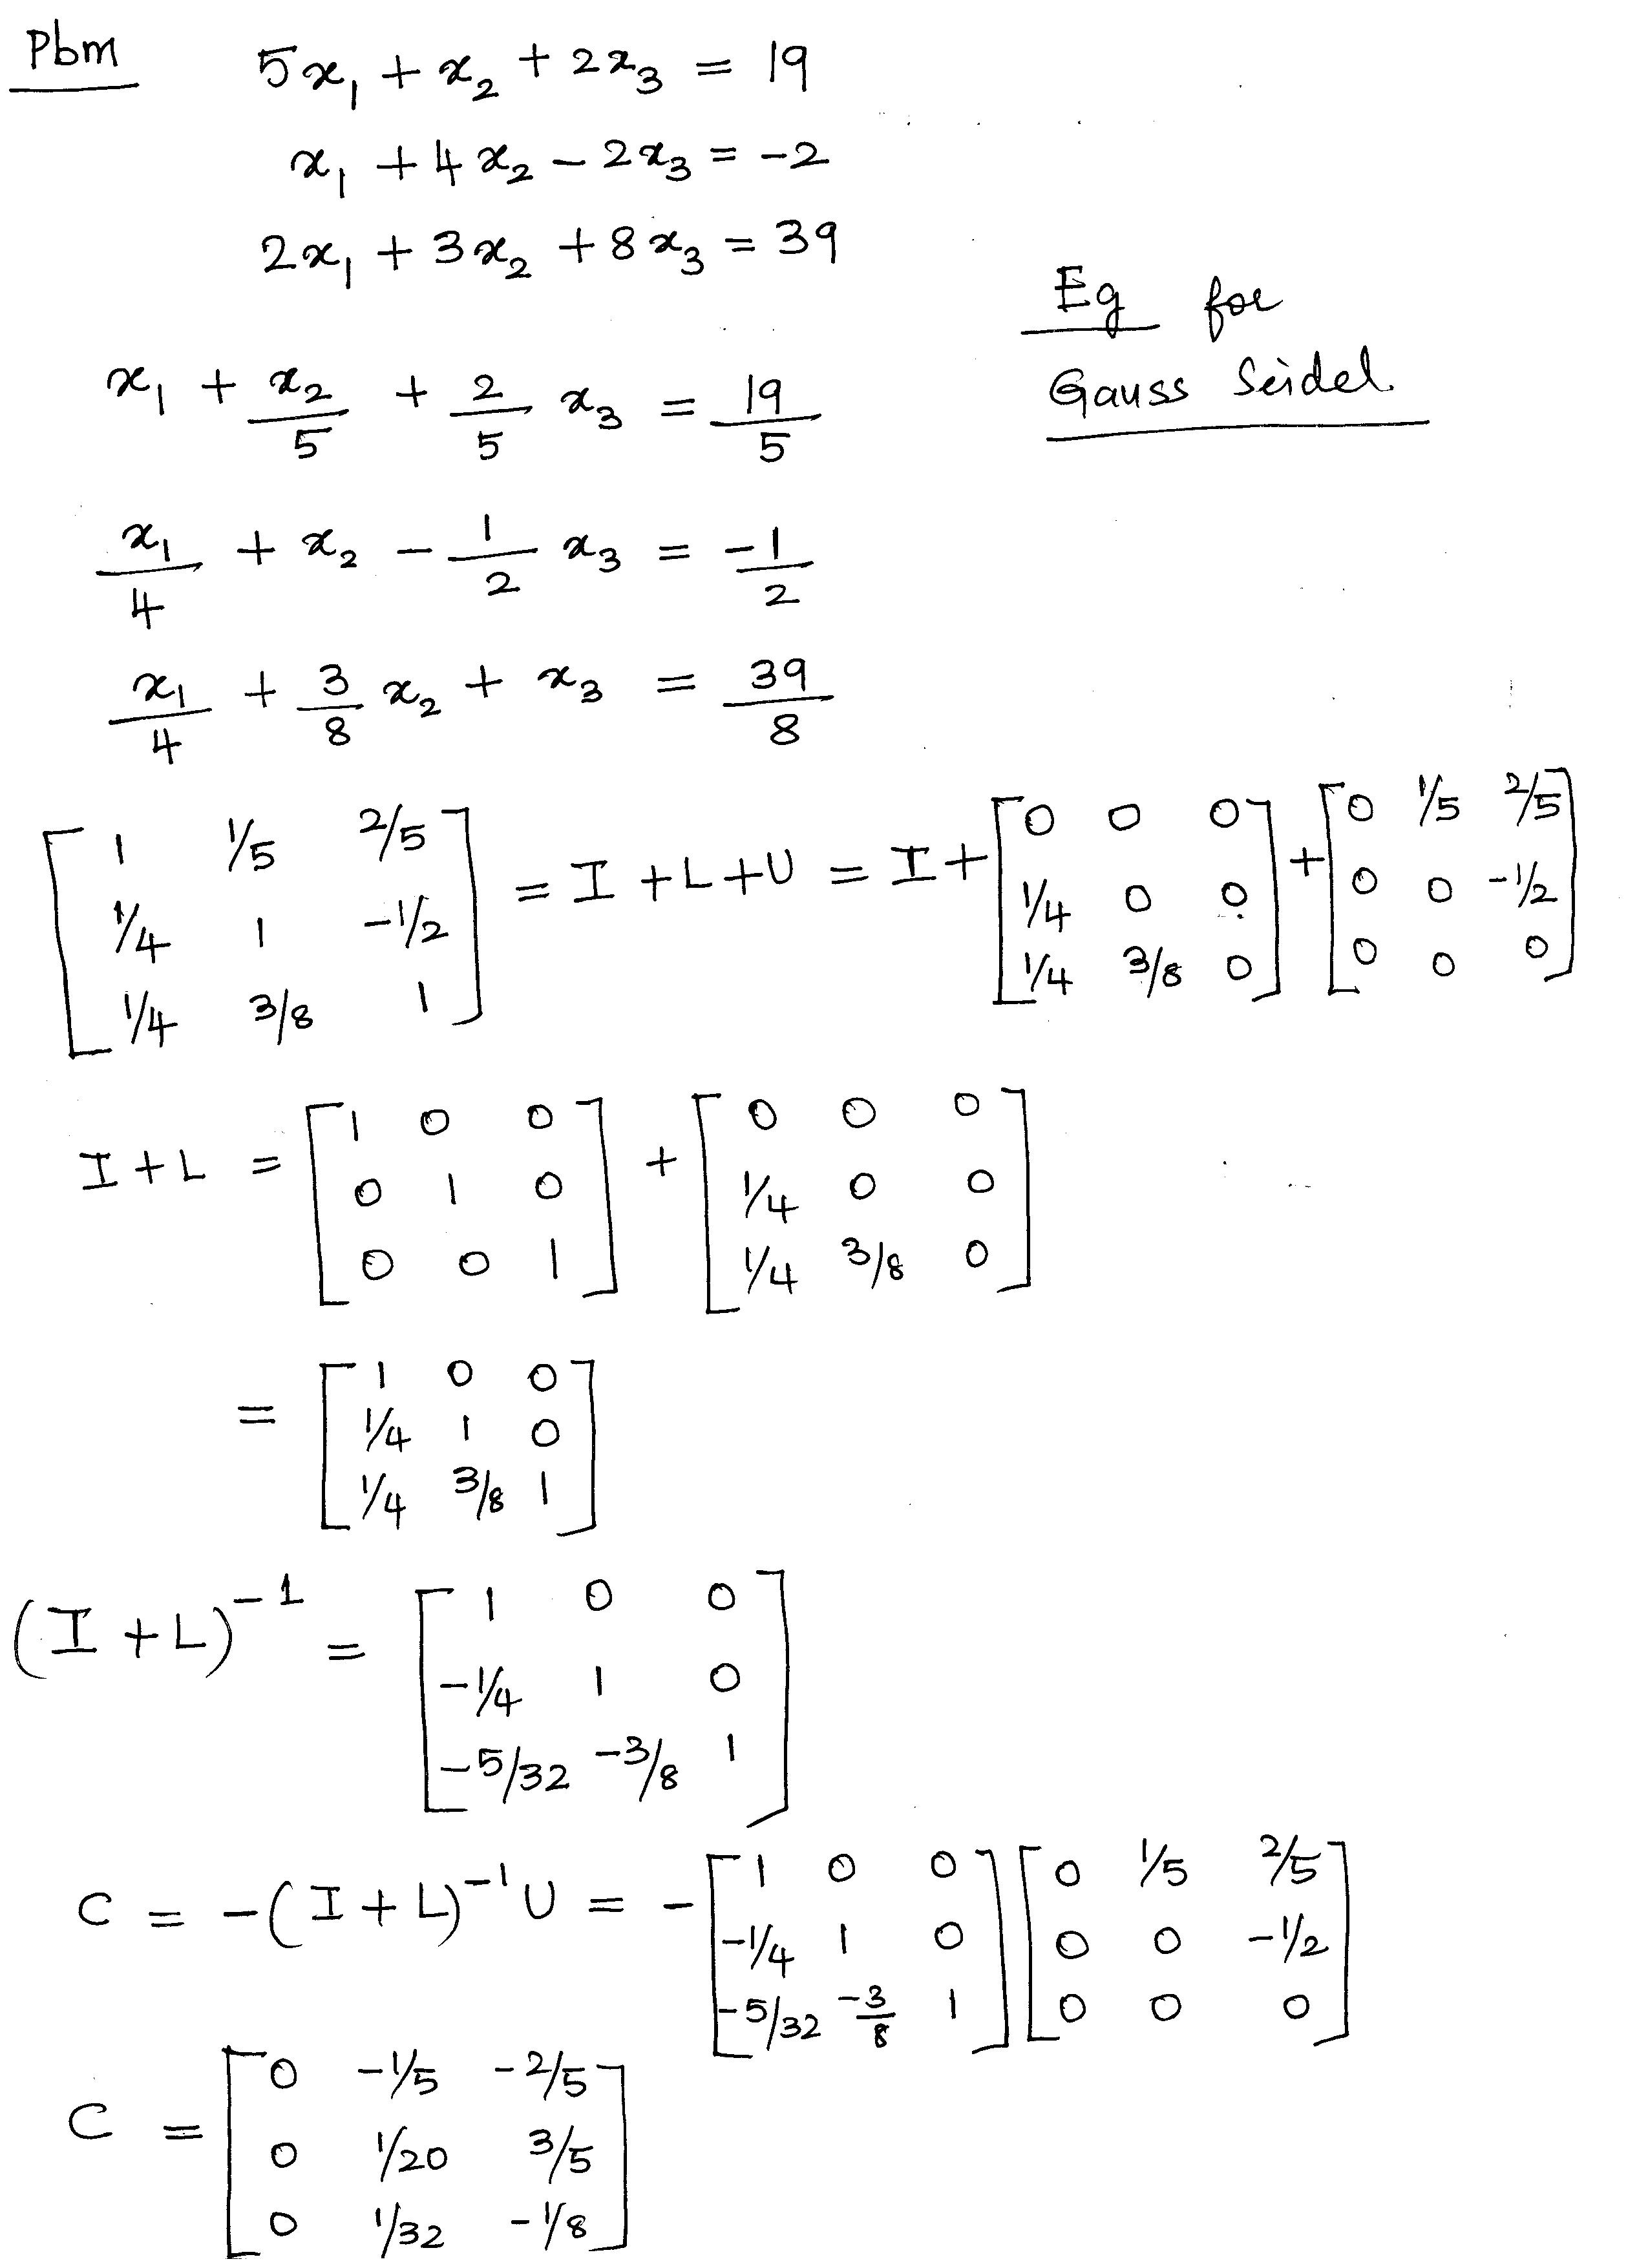 Pbm 5x₁ + x₂ + 2x₃ = 19
x₁ + 4x₂ − 2x₃ = −2
2x₁ + 3x₂ + 8x₃ = 39
Eg for
Gauss Seidel
x₁ + x₂/5 + 2/5 x₃ = 19/5
x₁/4 + x₂ − 1/2 x₃ = −1/2
x₁/4 + 3/8 x₂ + x₃ = 39/8
[1 1/5 2/5; 1/4 1 −1/2; 1/4 3/8 1] = I + L + U = I + [0 0 0; 1/4 0 0; 1/4 3/8 0] + [0 1/5 2/5; 0 0 −1/2; 0 0 0]
I + L = [1 0 0; 0 1 0; 0 0 1] + [0 0 0; 1/4 0 0; 1/4 3/8 0]
= [1 0 0; 1/4 1 0; 1/4 3/8 1]
(I + L)⁻¹ = [1 0 0; −1/4 1 0; −5/32 −3/8 1]
C = −(I + L)⁻¹U = −[1 0 0; −1/4 1 0; −5/32 −3/8 1] [0 1/5 2/5; 0 0 −1/2; 0 0 0]
C = [0 −1/5 −2/5; 0 1/20 3/5; 0 1/32 −1/8]